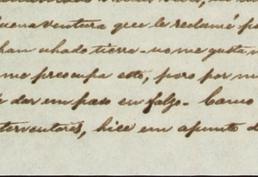 cenaventura que le reclamé pa
han echado tierra - no me gusta n
me preocupa esto, pero por m
e dar un paso en falso. Como
terventores, hice un apunte d